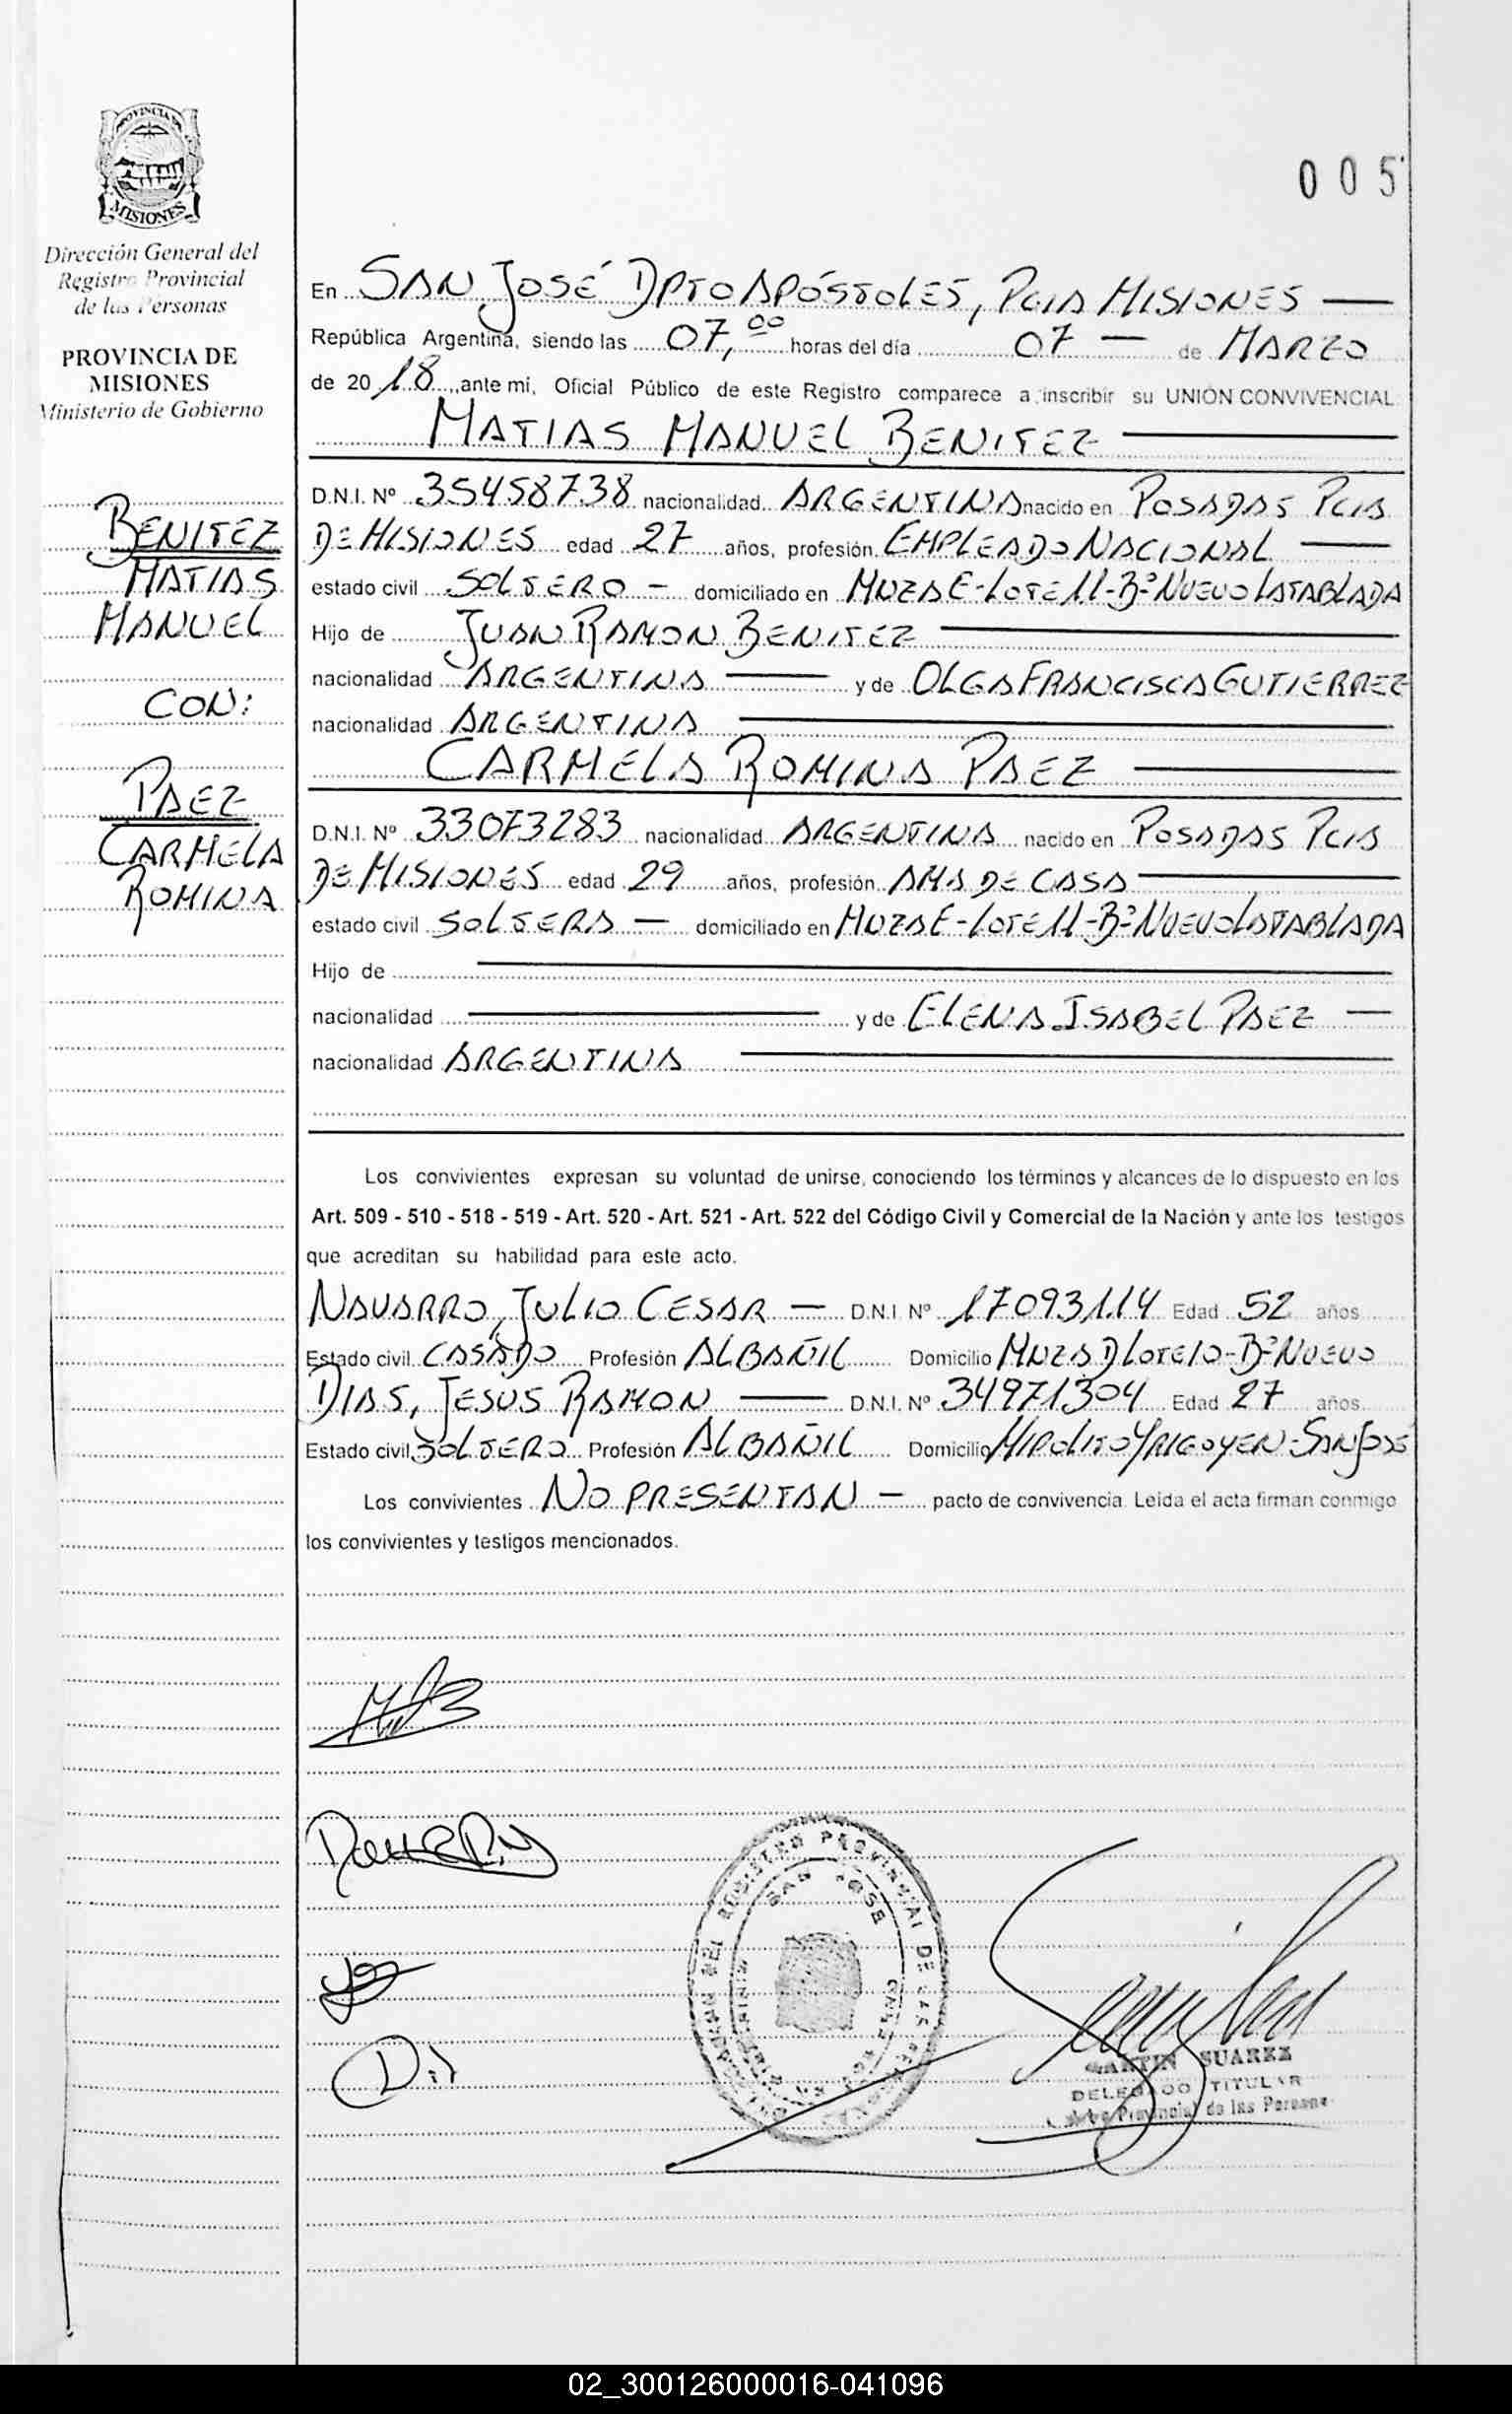 PROVINCIA DE
MISIONES
Dirección General del
Registro Provincial
de las Personas
PROVINCIA DE
MISIONES
Ministerio de Gobierno
BENITEZ
MATIAS
MANUEL
CON:
PAEZ
CARMELA
ROMINA
005
En SAN JOSÉ DPTO APÓSTOLES, PCIA MISIONES —
República Argentina, siendo las 07,00 horas del día 07 — de MARZO
de 2018, ante mi, Oficial Público de este Registro comparece a inscribir su UNION CONVIVENCIAL
MATIAS MANUEL BENITEZ —
D.N.I. Nº 35458738 nacionalidad ARGENTINA nacido en POSADAS PCIA
DE MISIONES edad 27 años, profesión EMPLEADO NACIONAL —
estado civil SOLTERO — domiciliado en MNZA E-LOTE 11-Bº NUEVO LATABLADA
Hijo de JUAN RAMON BENITEZ —
nacionalidad ARGENTINA — y de OLGA FRANCISCA GUTIERREZ
nacionalidad ARGENTINA —
CARMELA ROMINA PAEZ —
D.N.I. Nº 33073283 nacionalidad ARGENTINA nacido en POSADAS PCIA
DE MISIONES edad 29 años, profesión AMA DE CASA —
estado civil SOLTERA — domiciliado en MNZA E-LOTE 11-Bº NUEVO LATABLADA
Hijo de —
nacionalidad — y de ELENA ISABEL PAEZ —
nacionalidad ARGENTINA —
Los convivientes expresan su voluntad de unirse, conociendo los términos y alcances de lo dispuesto en los
Art. 509 - 510 - 518 - 519 - Art. 520 - Art. 521 - Art. 522 del Código Civil y Comercial de la Nación y ante los testigos
que acreditan su habilidad para este acto.
NAVARRO, JULIO CESAR — D.N.I. Nº 17093114 Edad 52 años
Estado civil CASADO Profesión ALBAÑIL Domicilio MNZA D LOTE 10-Bº NUEVO
DIAS, JESUS RAMON — D.N.I. Nº 34971304 Edad 27 años
Estado civil SOLTERO Profesión ALBAÑIL Domicilio HIPOLITO YRIGOYEN-SAN JOSÉ
Los convivientes NO PRESENTAN — pacto de convivencia. Leída el acta firman conmigo
los convivientes y testigos mencionados.
REGISTRO PROVINCIAL DE LAS
SAN JOSE
MARTIN SUAREZ
DELEGADO TITULAR
Provincial de las Persona
02_300126000016-041096